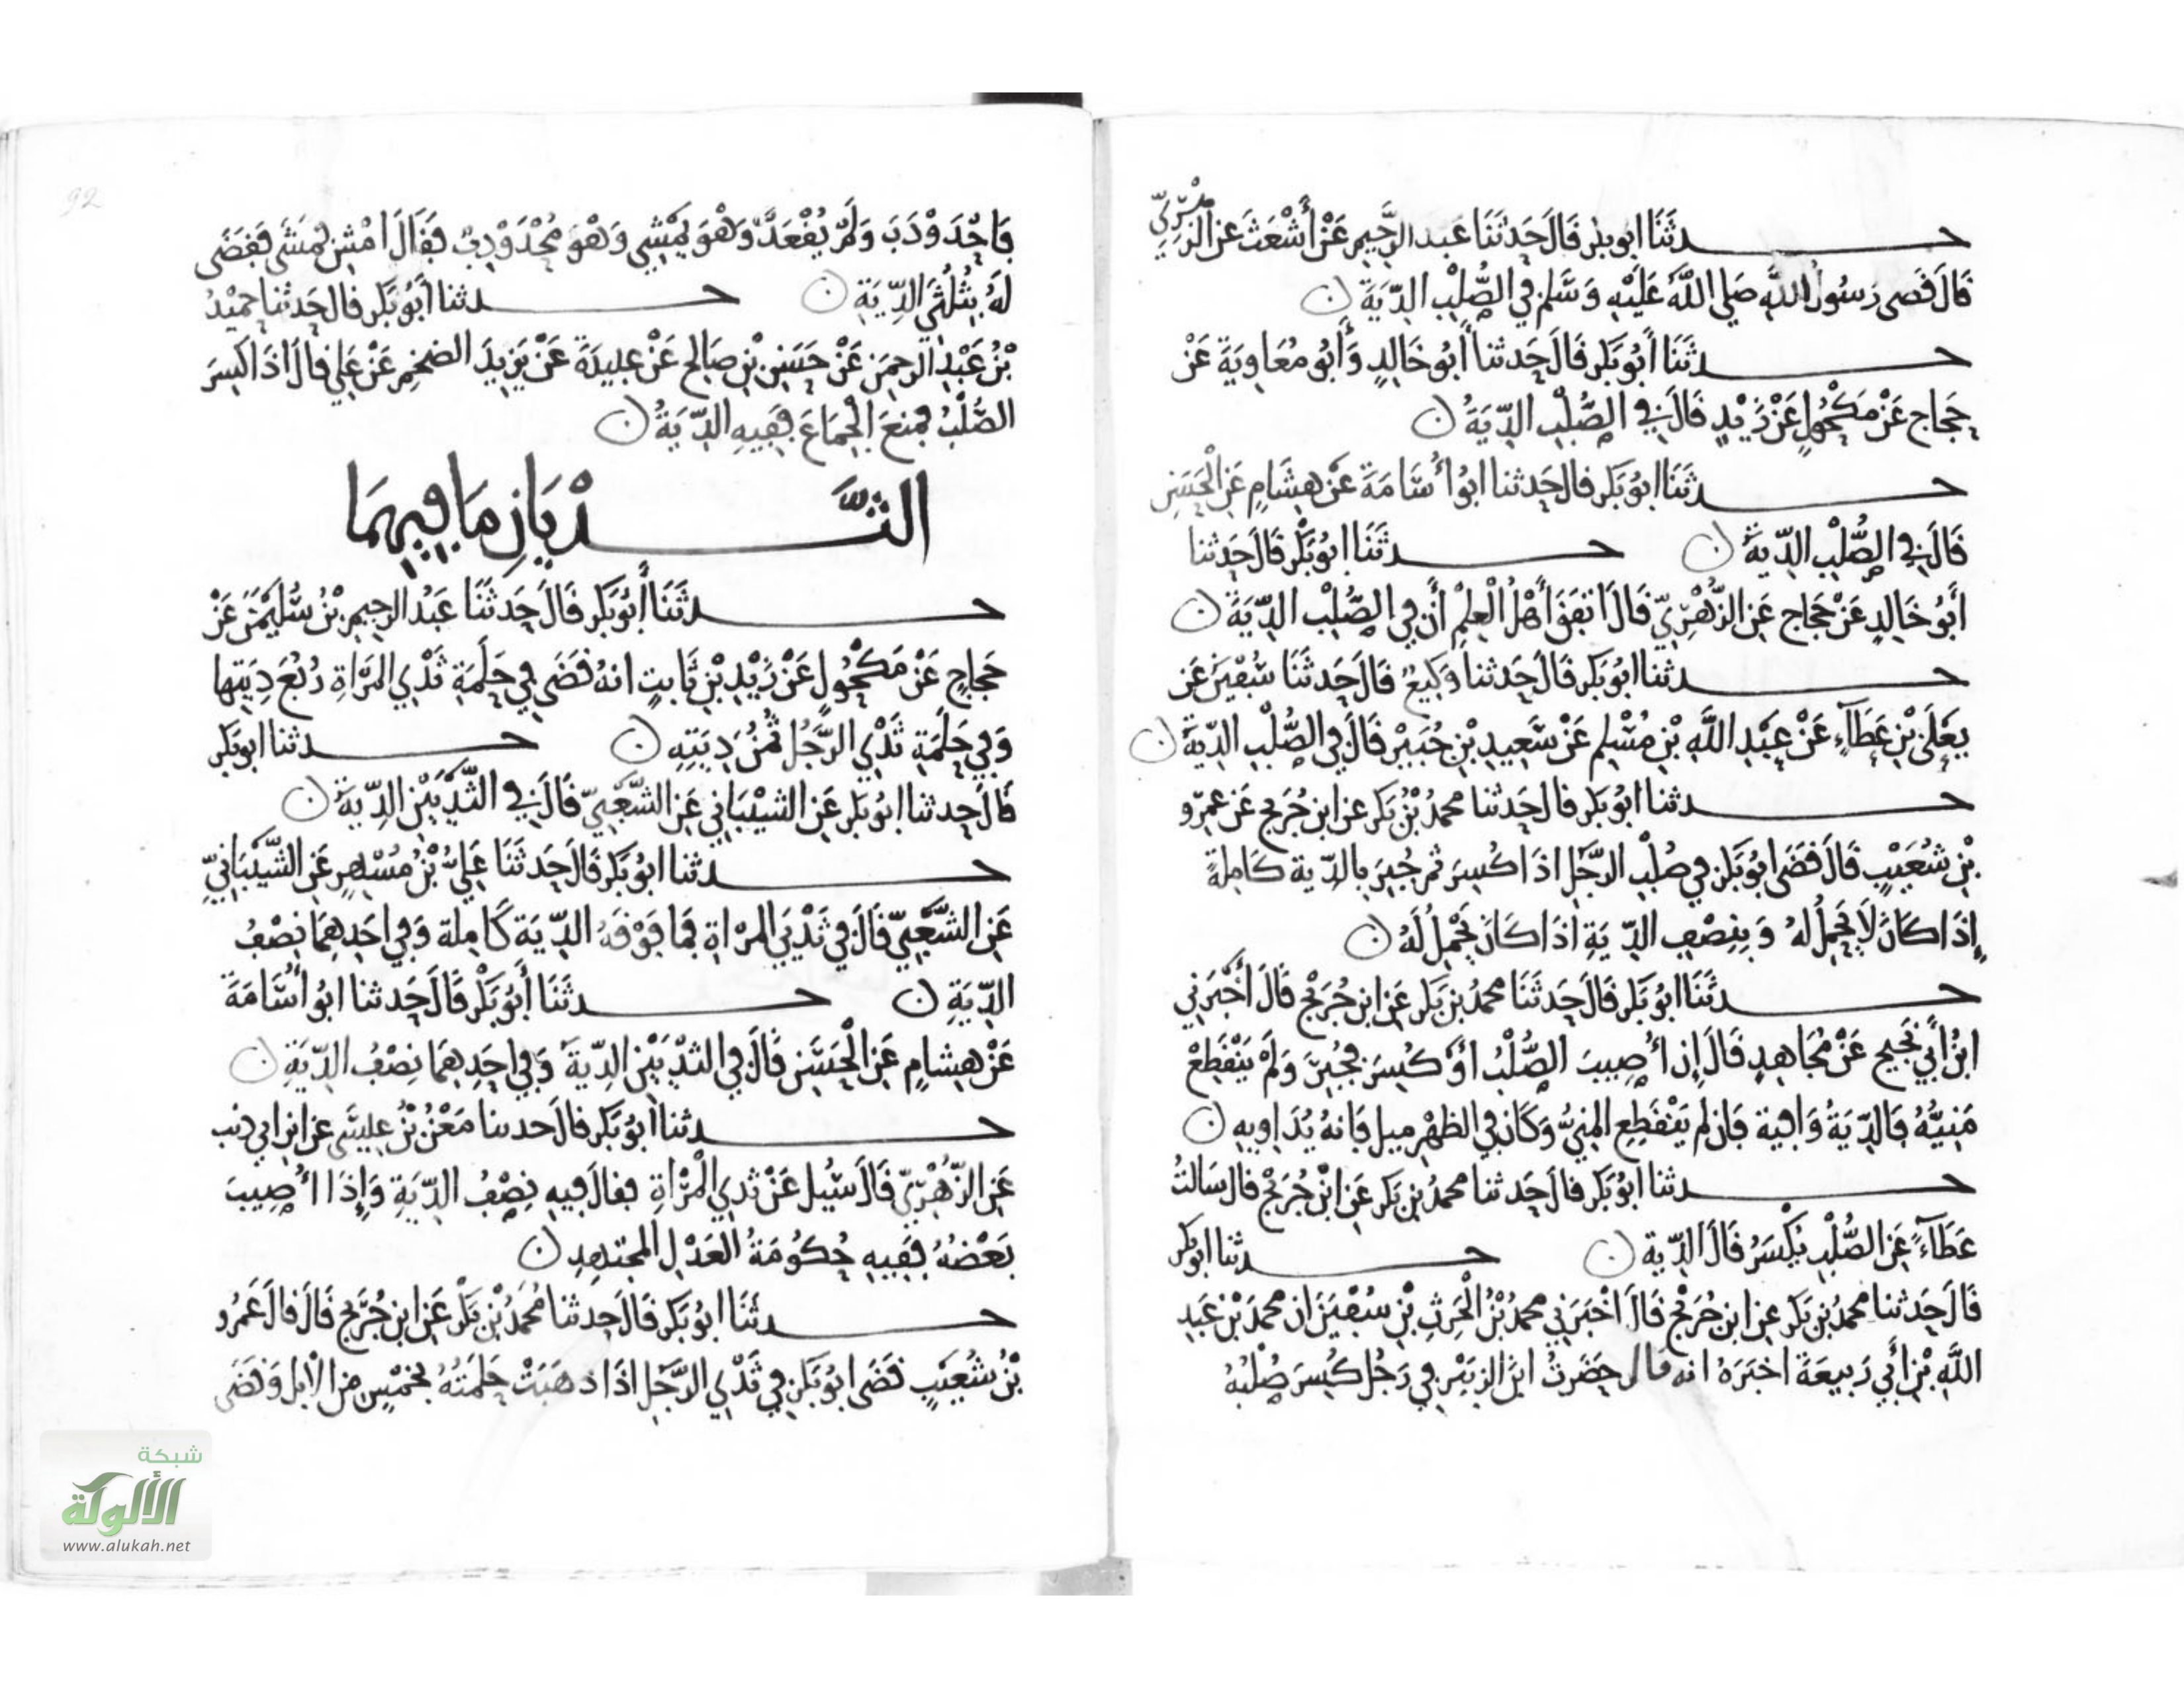 حدثنا أبو بكر قال حدثنا عبد الرحيم عن أشعث عن الزهري
قال قضى رسول الله صلى الله عليه وسلم في الصلب الدية ن
حدثنا أبو بكر قال حدثنا أبو خالد وأبو معاوية عن
حجاج عن مكحول عن زيد قال في الصلب الدية ن
حدثنا أبو بكر قال حدثنا أبو أسامة عن هشام عن الحسن
قال في الصلب الدية ن حدثنا أبو بكر قال حدثنا
أبو خالد عن حجاج عن الزهري قال اتفق أهل العلم أن في الصلب الدية ن
حدثنا أبو بكر قال حدثنا وكيع قال حدثنا سفين عن
يعلى بن عطاء عن عبد الله بن مسلم عن سعيد بن جبير قال في الصلب الدية ن
حدثنا أبو بكر قال حدثنا محمد بن بكر عن ابن جريج عن عمرو
بن شعيب قال قضى أبو بكر في صلب الرجل اذا كسر ثم جبر بالدية كاملة
إذا كان لا يحمل له وبنصف الدية اذا كان يحمل له ن
حدثنا أبو بكر قال حدثنا محمد بن بكر عن ابن جريج قال أخبرني
ابن أبي نجيح عن مجاهد قال إن أصيب الصلب أو كسر فجبر ولم ينقطع
منيه فالدية وافية فان لم ينقطع المني وكان في الظهر ميل فانه يداويه ن
حدثنا أبو بكر قال حدثنا محمد بن بكر عن ابن جريج قال سالت
عطاء عن الصلب يكسر قال الدية ن حدثنا أبو بكر
قال حدثنا محمد بن بكر عن ابن جريج قال اخبرني محمد بن الحرث بن سفين ان محمد بن عبد
الله بن أبي ربيعة اخبره انه قال حضرت ابن الزبير في رجل كسر صلبه
فاحدودب ولم يقعد وهو يمشي وهو محدودب فقال امش فمشى فقضى
له بثلثي الدية ن حدثنا أبو بكر قال حدثنا حميد
بن عبد الرحمن عن حسن بن صالح عن عبيدة عن يزيد الضخم عن علي قال اذا كسر
الصلب فمنع الجماع ففيه الدية ن
الثديان ما فيهما
حدثنا أبو بكر قال حدثنا عبد الرحيم بن سليمن عن
حجاج عن مكحول عن زيد بن ثابت انه قضى في حلمة ثدي المرأة ربع ديتها
وفي حلمة ثدي الرجل ثمن ديته ن حدثنا أبو بكر
قال حدثنا أبو بكر عن الشيباني عن الشعبي قال في الثديين الدية ن
حدثنا أبو بكر قال حدثنا علي بن مسهر عن الشيباني
عن الشعبي قال في ثديي المرأة فما فوقه الدية كاملة وفي احدهما نصف
الدية ن حدثنا أبو بكر قال حدثنا أبو أسامة
عن هشام عن الحسن قال في الثديين الدية وفي احدهما نصف الدية ن
حدثنا أبو بكر قال حدثنا معن بن عيسى عن ابن ابي ذئب
عن الزهري قال سئل عن ثدي المرأة فقال فيه نصف الدية وإذا أصيب
بعضه ففيه حكومة العدل المجتهد ن
حدثنا أبو بكر قال حدثنا محمد بن بكر عن ابن جريج قال قال عمرو
بن شعيب قضى أبو بكر في ثدي الرجل اذا ذهبت حلمته بخمس من الابل وقضى
شبكة
الألوكة
www.alukah.net
92